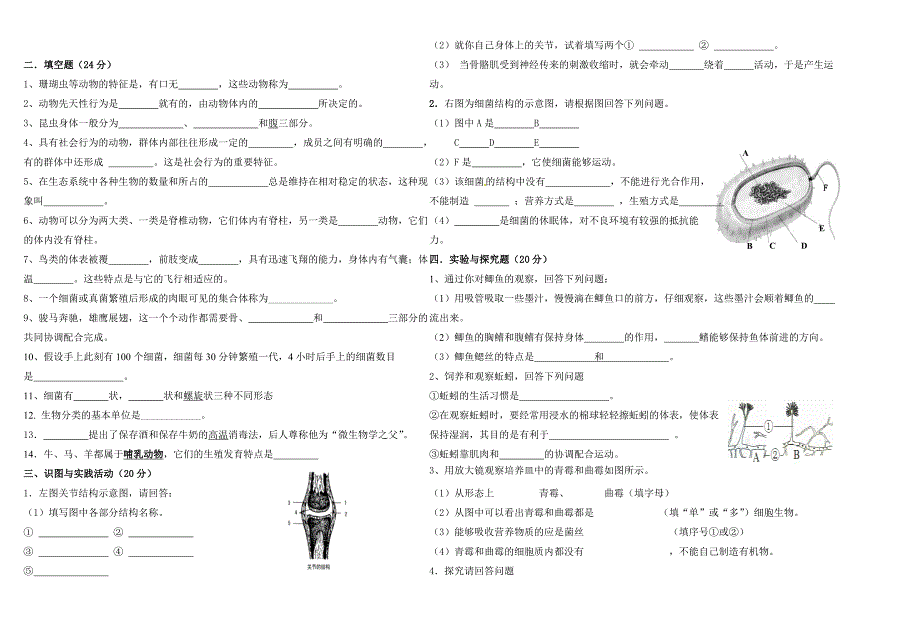 二．填空题（24 分）
1、珊瑚虫等动物的特征是，有口无________，这些动物称为__________。
2、动物先天性行为是________就有的，由动物体内的____________所决定的。
3、昆虫身体一般分为_____________、_____________和腹三部分。
4、具有社会行为的动物，群体内部往往形成一定的_________，成员之间有明确的________，
有的群体中还形成 _________。这是社会行为的重要特征。
5、在生态系统中各种生物的数量和所占的____________总是维持在相对稳定的状态，这种现
象叫________________。
6、动物可以分为两大类、一类是脊椎动物，它们体内有脊柱，另一类是________动物，它们
的体内没有脊柱。
7、鸟类的体表被覆________，前肢变成________，具有迅速飞翔的能力，身体内有气囊；体
温________。这些特点是与它的飞行相适应的。
8、一个细菌或真菌繁殖后形成的肉眼可见的集合体称为_____________。
9、骏马奔驰，雄鹰展翅，这一个个动作都需要骨、_____________和_____________三部分的
共同协调配合完成。
10、假设手上此刻有 100 个细菌，细菌每 30 分钟繁殖一代，4 小时后手上的细菌数目
是__________________。
11、细菌有_______状，_______状和螺旋状三种不同形态
12. 生物分类的基本单位是____________。
13．_________提出了保存酒和保存牛奶的高温消毒法，后人尊称他为“微生物学之父”。
14．牛、马、羊都属于哺乳动物，它们的生殖发育特点是____________
三、识图与实践活动（20 分）
1．左图关节结构示意图，请回答：
（1）填写图中各部分结构名称。
① ______________ ② ________________
③ ______________ ④ ________________
⑤_______________
3
4
5
1
2
关节的结构
（2）就你自己身体上的关节，试着填写两个① ___________ ② ____________。
（3） 当骨骼肌受到神经传来的刺激收缩时，就会牵动_______绕着______活动，于是产生运
动。
2．右图为细菌结构的示意图，请根据图回答下列问题。
（1）图中 A 是________B________
C______D_________E________
（2）F 是__________，它使细菌能够运动。
（3）该细菌的结构中没有_____________，不能进行光合作用，
不能制造 _______ ；营养方式是________ ，生殖方式是_________
（4）_________是细菌的休眠体，对不良环境有较强的抵抗能
力。
A
B
C
D
E
F
四．实验与探究题（20 分）
1、通过你对鲫鱼的观察，回答下列问题：
（1）用吸管吸取一些墨汁，慢慢滴在鲫鱼口的前方，仔细观察，这些墨汁会顺着鲫鱼的____
流出来。
（2）鲫鱼的胸鳍和腹鳍有保持身体________的作用，_______鳍能够保持鱼体前进的方向。
（3）鲫鱼鳃丝的特点是____________和 ____________。
2、饲养和观察蚯蚓，回答下列问题
①蚯蚓的生活习惯是__________________。
②在观察蚯蚓时，要经常用浸水的棉球轻轻擦蚯蚓的体表，使体表
保持湿润，其目的是有利于_________________________ 。
③蚯蚓靠肌肉和 _________的协调配合运动。
①
②
A
B
3、用放大镜观察培养皿中的青霉和曲霉如图所示。
（1）从形态上 青霉、 曲霉（填字母）
（2）从图中可以看出青霉和曲霉都是 （填“单”或“多”）细胞生物。
（3）能够吸收营养物质的应是菌丝 （填序号①或②）
（4）青霉和曲霉的细胞质内都没有 ，不能自己制造有机物。
4．探究请回答问题